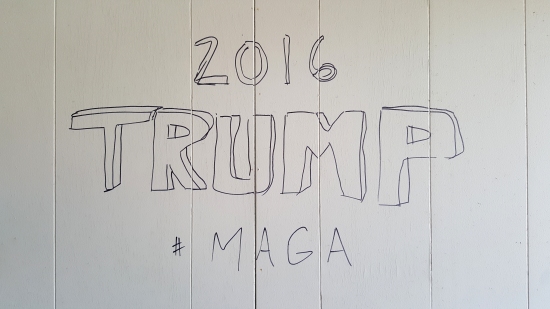 2016
TRUMP
# MAGA